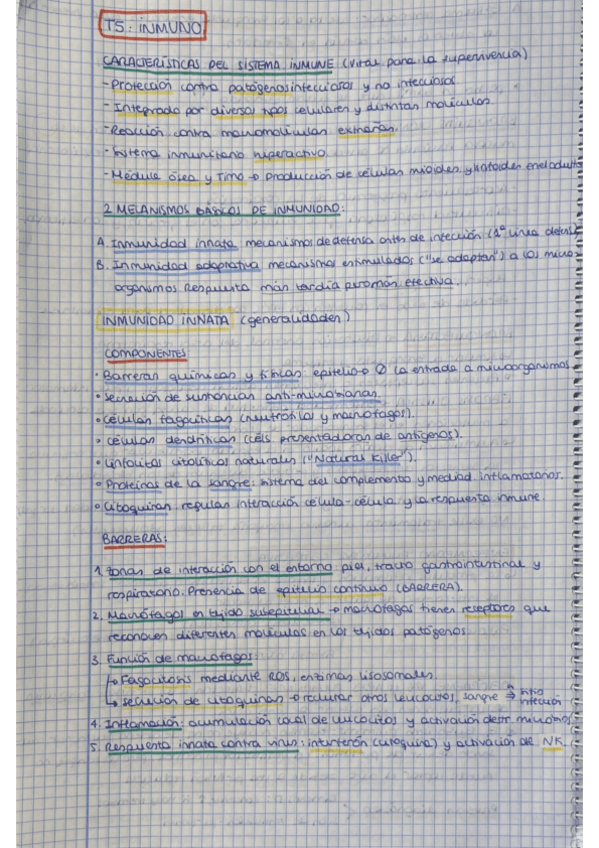 T5: INMUNO
CARACTERÍSTICAS DEL SISTEMA INMUNE (vital para la supervivencia)
- Protección contra patógenos infecciosos y no infecciosos.
- Integrado por diversos tipos celulares y distintas moléculas.
- Reacción contra macromoléculas extrañas.
- Sistema inmunitario hiperactivo.
- Médula ósea y Timo → Producción de células mieloides y linfoides en el adulto
2 MECANISMOS BÁSICOS DE INMUNIDAD:
A. Inmunidad innata: mecanismos de defensa antes de infección (1ª línea defensa
B. Inmunidad adaptativa mecanismos estimulados ("se adaptan") a los micro-
organismos Respuesta más tardía pero más efectiva.
INMUNIDAD INNATA (generalidades)
COMPONENTES
• Barreras químicas y físicas epitelio → Ø la entrada a microorganismos.
• Secreción de sustancias anti-microbianas
• Células fagocíticas (neutrófilos y macrófagos).
• Células dendríticas (céls presentadoras de antígenos).
• Linfocitos citolíticos naturales ("Natural Killer").
• Proteínas de la sangre: sistema del complemento y mediad. inflamatorios.
• Citoquinas: regulan interacción célula-célula y la respuesta inmune
BARRERAS:
1. Zonas de interacción con el entorno piel, tracto gastrointestinal y
respiratorio. Presencia de epitelio continuo (BARRERA).
2. Macrófagos en tejido subepitelial → macrófagos tienen receptores que
reconocen diferentes moléculas en los tejidos patógenos
3. Función de macrófagos:
↳ Fagocitosis mediante ROS, enzimas lisosomales.
↳ Secreción de citoquinas → reclutar otros leucocitos, sangre ⇒ sitio infección
4. Inflamación: acumulación local de leucocitos y activación destr microbios
5. Respuesta innata contra virus: interferón (citoquina) y activación de NK.